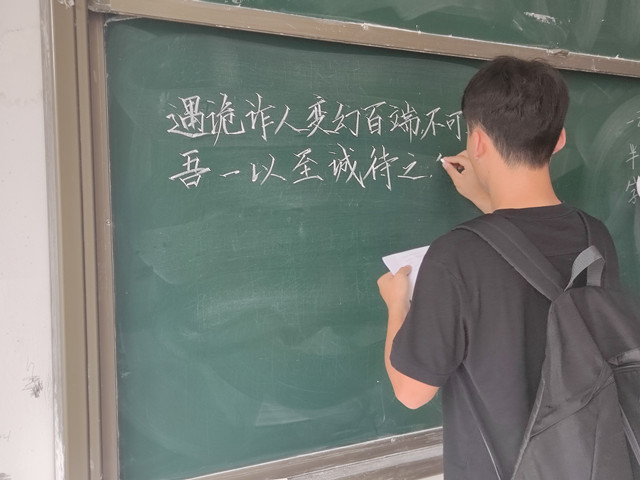 遇诡诈人变幻百端,不可
吾一以至诚待之,